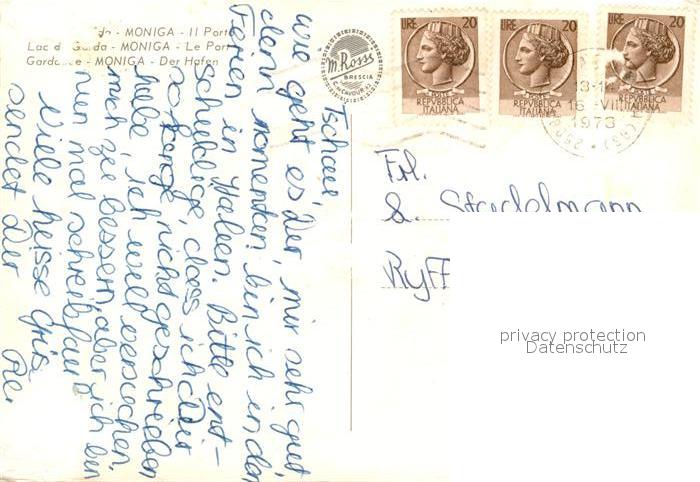 - MONIGA - Il Porto
Lac d Garda - MONIGA - Le Port
Gardasee - MONIGA - Der Hafen
M. Rossi
BRESCIA
LIRE 20
REPVBBLICA
ITALIANA
LIRE 20
REPVBBLICA
ITALIANA
LIRE 20
REPVBBLICA
ITALIANA
13-1
16 VII
1973
Tschau,
wie geht es Dir, mir sehr gut
denn momentan bin ich in den
Ferien in Italien. Bitte ent-
schuldige, dass ich Dir
so lange nicht geschrieben
habe, ich will versuchen,
mich zu bessern, aber ich bin
nen mal schreibfaul
Viele heisse Grüs
sendet Dir
Frl.
S. Stadelmann
Ryff
privacy protection
Datenschutz